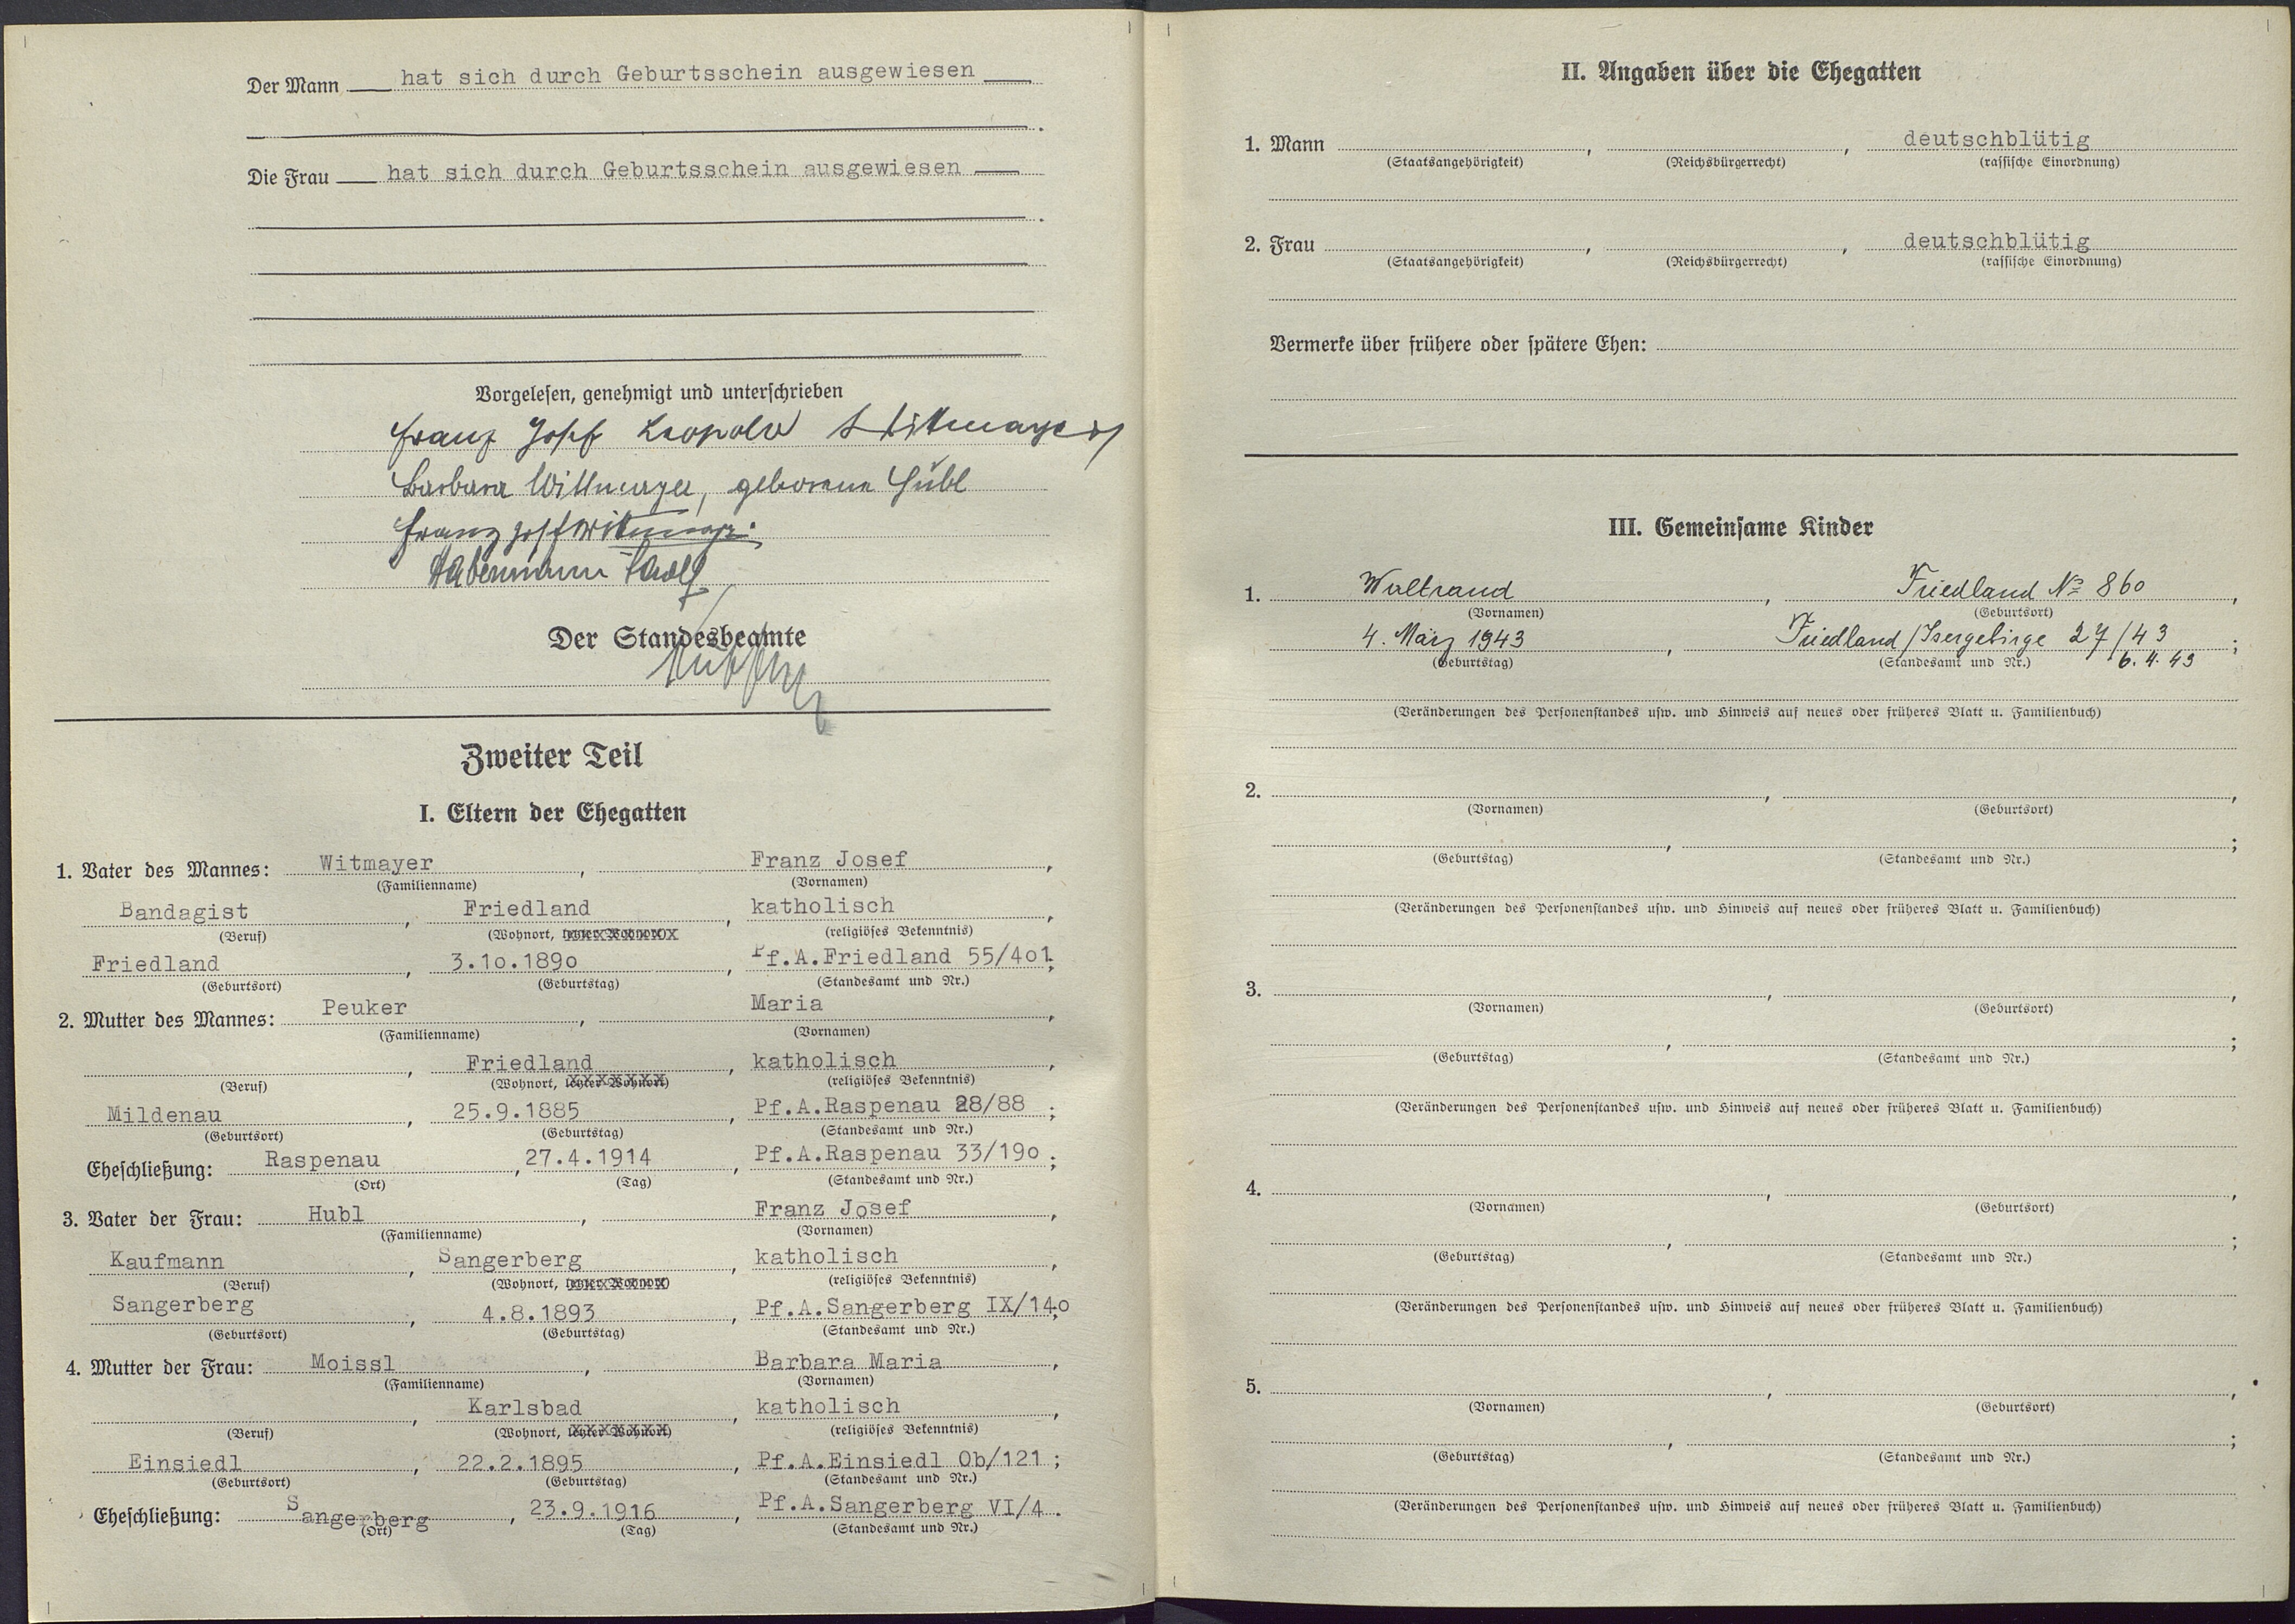 Der Mann hat sich durch Geburtsschein ausgewiesen
Die Frau hat sich durch Geburtsschein ausgewiesen
Vorgelesen, genehmigt und unterschrieben
Franz Josef Leopold Wittmayer
Barbara Wittmayer, geborene Hübl
Franz Josef Witmayer
Habermann
Der Standesbeamte
Zweiter Teil
I. Eltern der Ehegatten
1. Vater des Mannes: Witmayer, Franz Josef,
(Familienname) (Vornamen)
Bandagist, Friedland, katholisch,
(Beruf) (Wohnort, letzter Wohnort) (religiöses Bekenntnis)
Friedland, 3.10.1890, Pf.A.Friedland 55/401;
(Geburtsort) (Geburtstag) (Standesamt und Nr.)
2. Mutter des Mannes: Peuker, Maria,
(Familienname) (Vornamen)
, Friedland, katholisch,
(Beruf) (Wohnort, letzter Wohnort) (religiöses Bekenntnis)
Mildenau, 25.9.1885, Pf.A.Raspenau 28/88;
(Geburtsort) (Geburtstag) (Standesamt und Nr.)
Eheschließung: Raspenau, 27.4.1914, Pf.A.Raspenau 33/190;
(Ort) (Tag) (Standesamt und Nr.)
3. Vater der Frau: Hubl, Franz Josef,
(Familienname) (Vornamen)
Kaufmann, Sangerberg, katholisch,
(Beruf) (Wohnort, letzter Wohnort) (religiöses Bekenntnis)
Sangerberg, 4.8.1893, Pf.A.Sangerberg IX/140;
(Geburtsort) (Geburtstag) (Standesamt und Nr.)
4. Mutter der Frau: Moissl, Barbara Maria,
(Familienname) (Vornamen)
, Karlsbad, katholisch,
(Beruf) (Wohnort, letzter Wohnort) (religiöses Bekenntnis)
Einsiedl, 22.2.1895, Pf.A.Einsiedl Ob/121;
(Geburtsort) (Geburtstag) (Standesamt und Nr.)
Eheschließung: Sangerberg, 23.9.1916, Pf.A.Sangerberg VI/4.
(Ort) (Tag) (Standesamt und Nr.)
II. Angaben über die Ehegatten
1. Mann , , deutschblütig
(Staatsangehörigkeit) (Reichsbürgerrecht) (rassische Einordnung)
2. Frau , , deutschblütig
(Staatsangehörigkeit) (Reichsbürgerrecht) (rassische Einordnung)
Vermerke über frühere oder spätere Ehen:
III. Gemeinsame Kinder
1. Waltraud, Friedland No 860,
(Vornamen) (Geburtsort)
4. März 1943, Friedland/Isergebirge 27/43;
(Geburtstag) (Standesamt und Nr.) 6.4.43
(Veränderungen des Personenstandes usw. und Hinweis auf neues oder früheres Blatt u. Familienbuch)
2. , ,
(Vornamen) (Geburtsort)
, ;
(Geburtstag) (Standesamt und Nr.)
(Veränderungen des Personenstandes usw. und Hinweis auf neues oder früheres Blatt u. Familienbuch)
3. , ,
(Vornamen) (Geburtsort)
, ;
(Geburtstag) (Standesamt und Nr.)
(Veränderungen des Personenstandes usw. und Hinweis auf neues oder früheres Blatt u. Familienbuch)
4. , ,
(Vornamen) (Geburtsort)
, ;
(Geburtstag) (Standesamt und Nr.)
(Veränderungen des Personenstandes usw. und Hinweis auf neues oder früheres Blatt u. Familienbuch)
5. , ,
(Vornamen) (Geburtsort)
, ;
(Geburtstag) (Standesamt und Nr.)
(Veränderungen des Personenstandes usw. und Hinweis auf neues oder früheres Blatt u. Familienbuch)